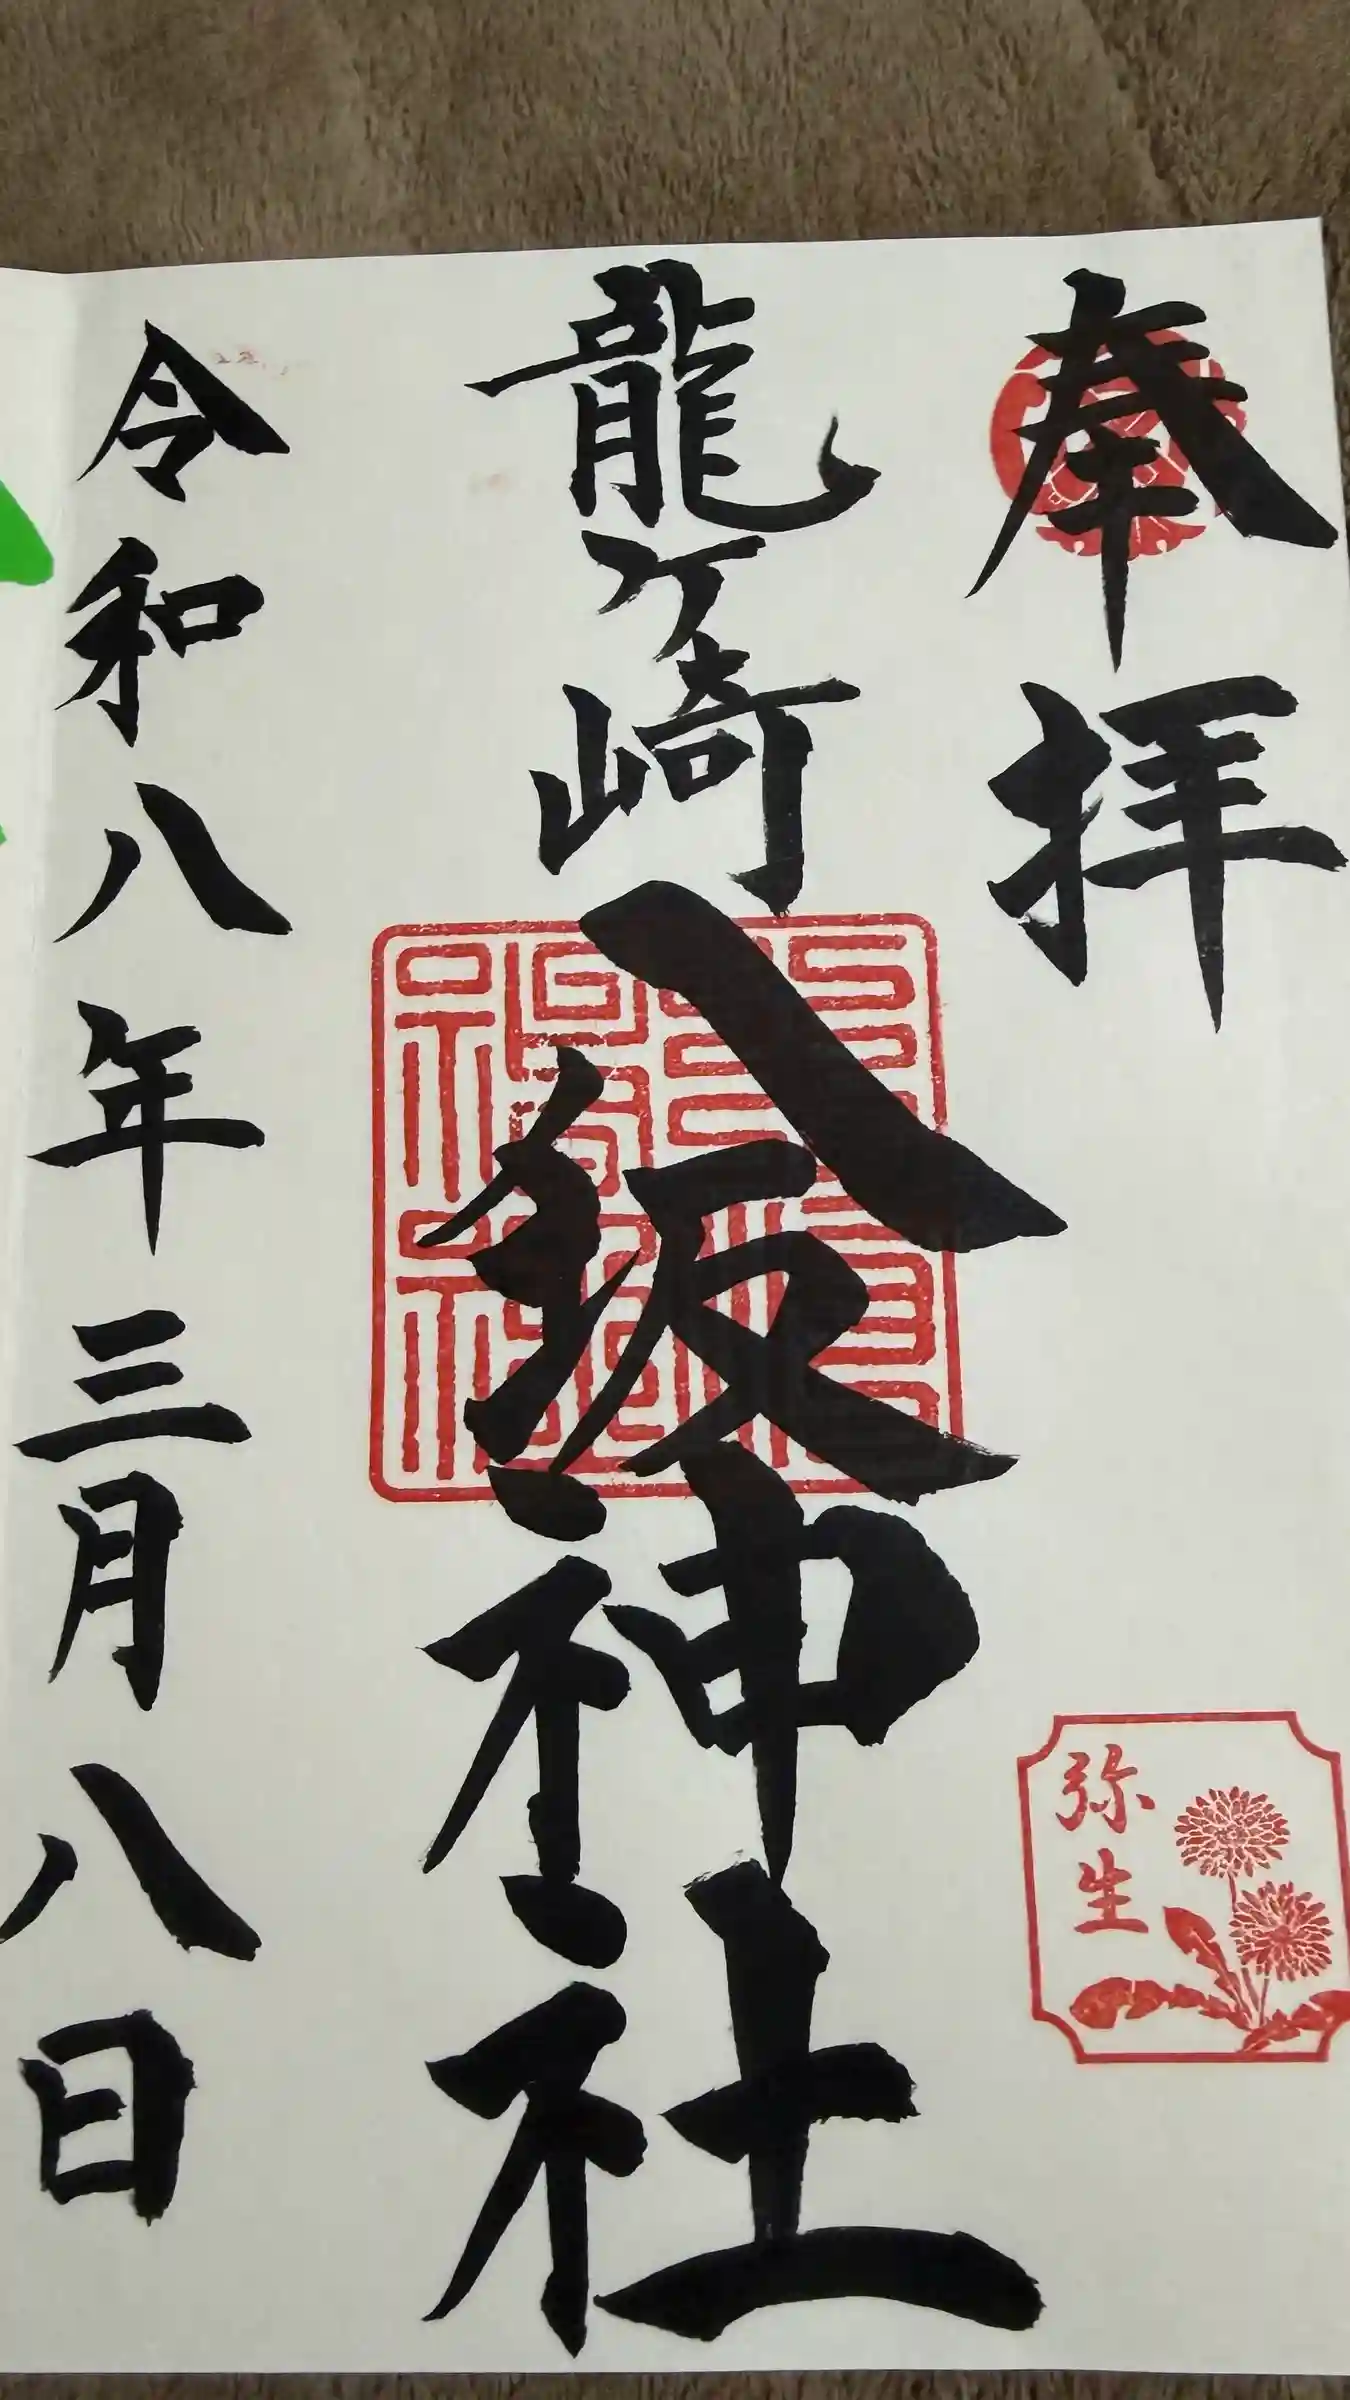 奉拝
弥生
龍ケ崎八坂神社
令和八年三月八日